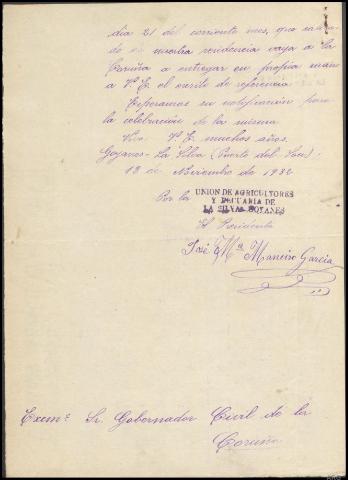 dia 21 del corriente mes, que
de nuestra residencia vaya a la
Coruña a entregar en propia mano
a Vª E. el escrito de referencia.
Esperamos su notificación para
la celebración de los misma
Viva Vª E. muchos años.
Goyanes-La Silva (Puerto del Son).
18 de Noviembre de 1932
Por la
UNION DE AGRICULTORES
Y PECUARIA DE
LA SILVA GOYANES
El Presidente
José Mª Maneiro Garcia
Exemº Sr. Gobernador Civil de la
Coruña